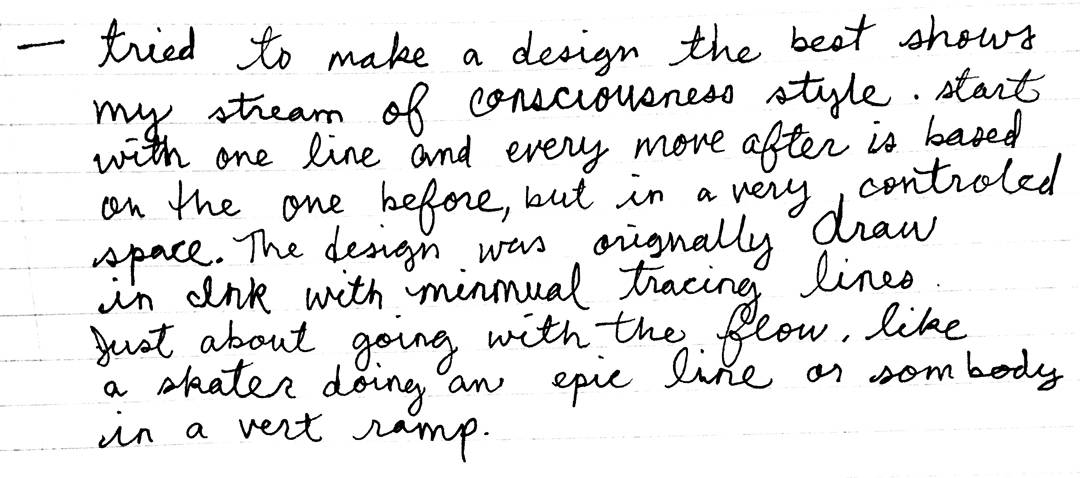 — tried to make a design the best shows
my stream of consciousness style. start
with one line and every move after is based
on the one before, but in a very controled
space. The design was orignally draw
in ink with minmual tracing lines.
Just about going with the flow, like
a skater doing an epic line or sombody
in a vert ramp.